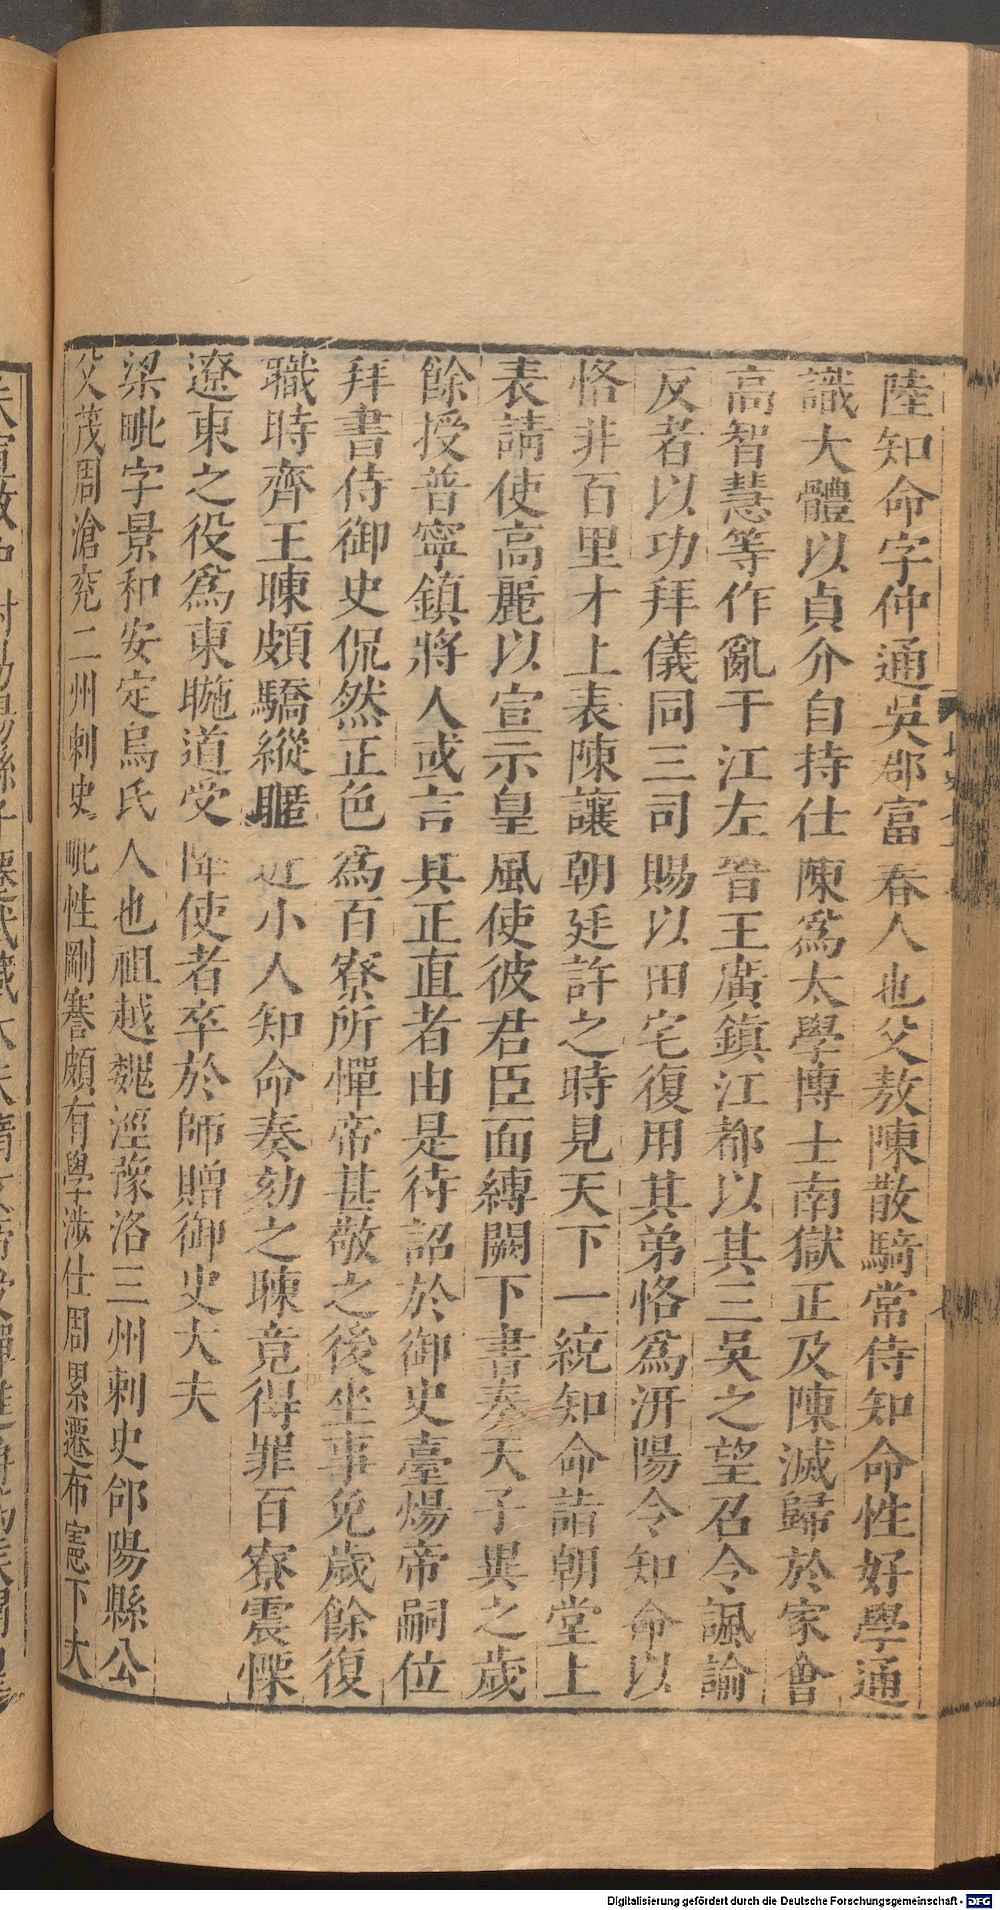 陸知命字仲通吳郡富春人也父敖陳散騎常侍知命性好學通
識大體以貞介自持仕陳爲太學博士南獄正及陳滅歸於家會
高智慧等作亂于江左晉王廣鎮江都以其三吳之望召令諷諭
反者以功拜儀同三司賜以田宅復用其弟恪爲汧陽令知命以
恪非百里才上表陳讓朝廷許之時見天下一統知命詣朝堂上
表請使高麗以宣示皇風使彼君臣面縛闕下書奏天子異之歲
餘授普寧鎮將人或言其正直者由是待詔於御史臺煬帝嗣位
拜書侍御史侃然正色爲百寮所憚帝甚敬之後坐事免歲餘復
職時齊王暕頗驕縱暱近小人知命奏劾之暕竟得罪百寮震慄
遼東之役爲東暆道受降使者卒於師贈御史大夫
梁毗字景和安定烏氏人也祖越魏涇豫洛三州刺史郃陽縣公
父茂周滄兗二州刺史毗性剛謇頗有學涉仕周累遷布憲下大
Digitalisierung gefördert durch die Deutsche Forschungsgemeinschaft - DFG